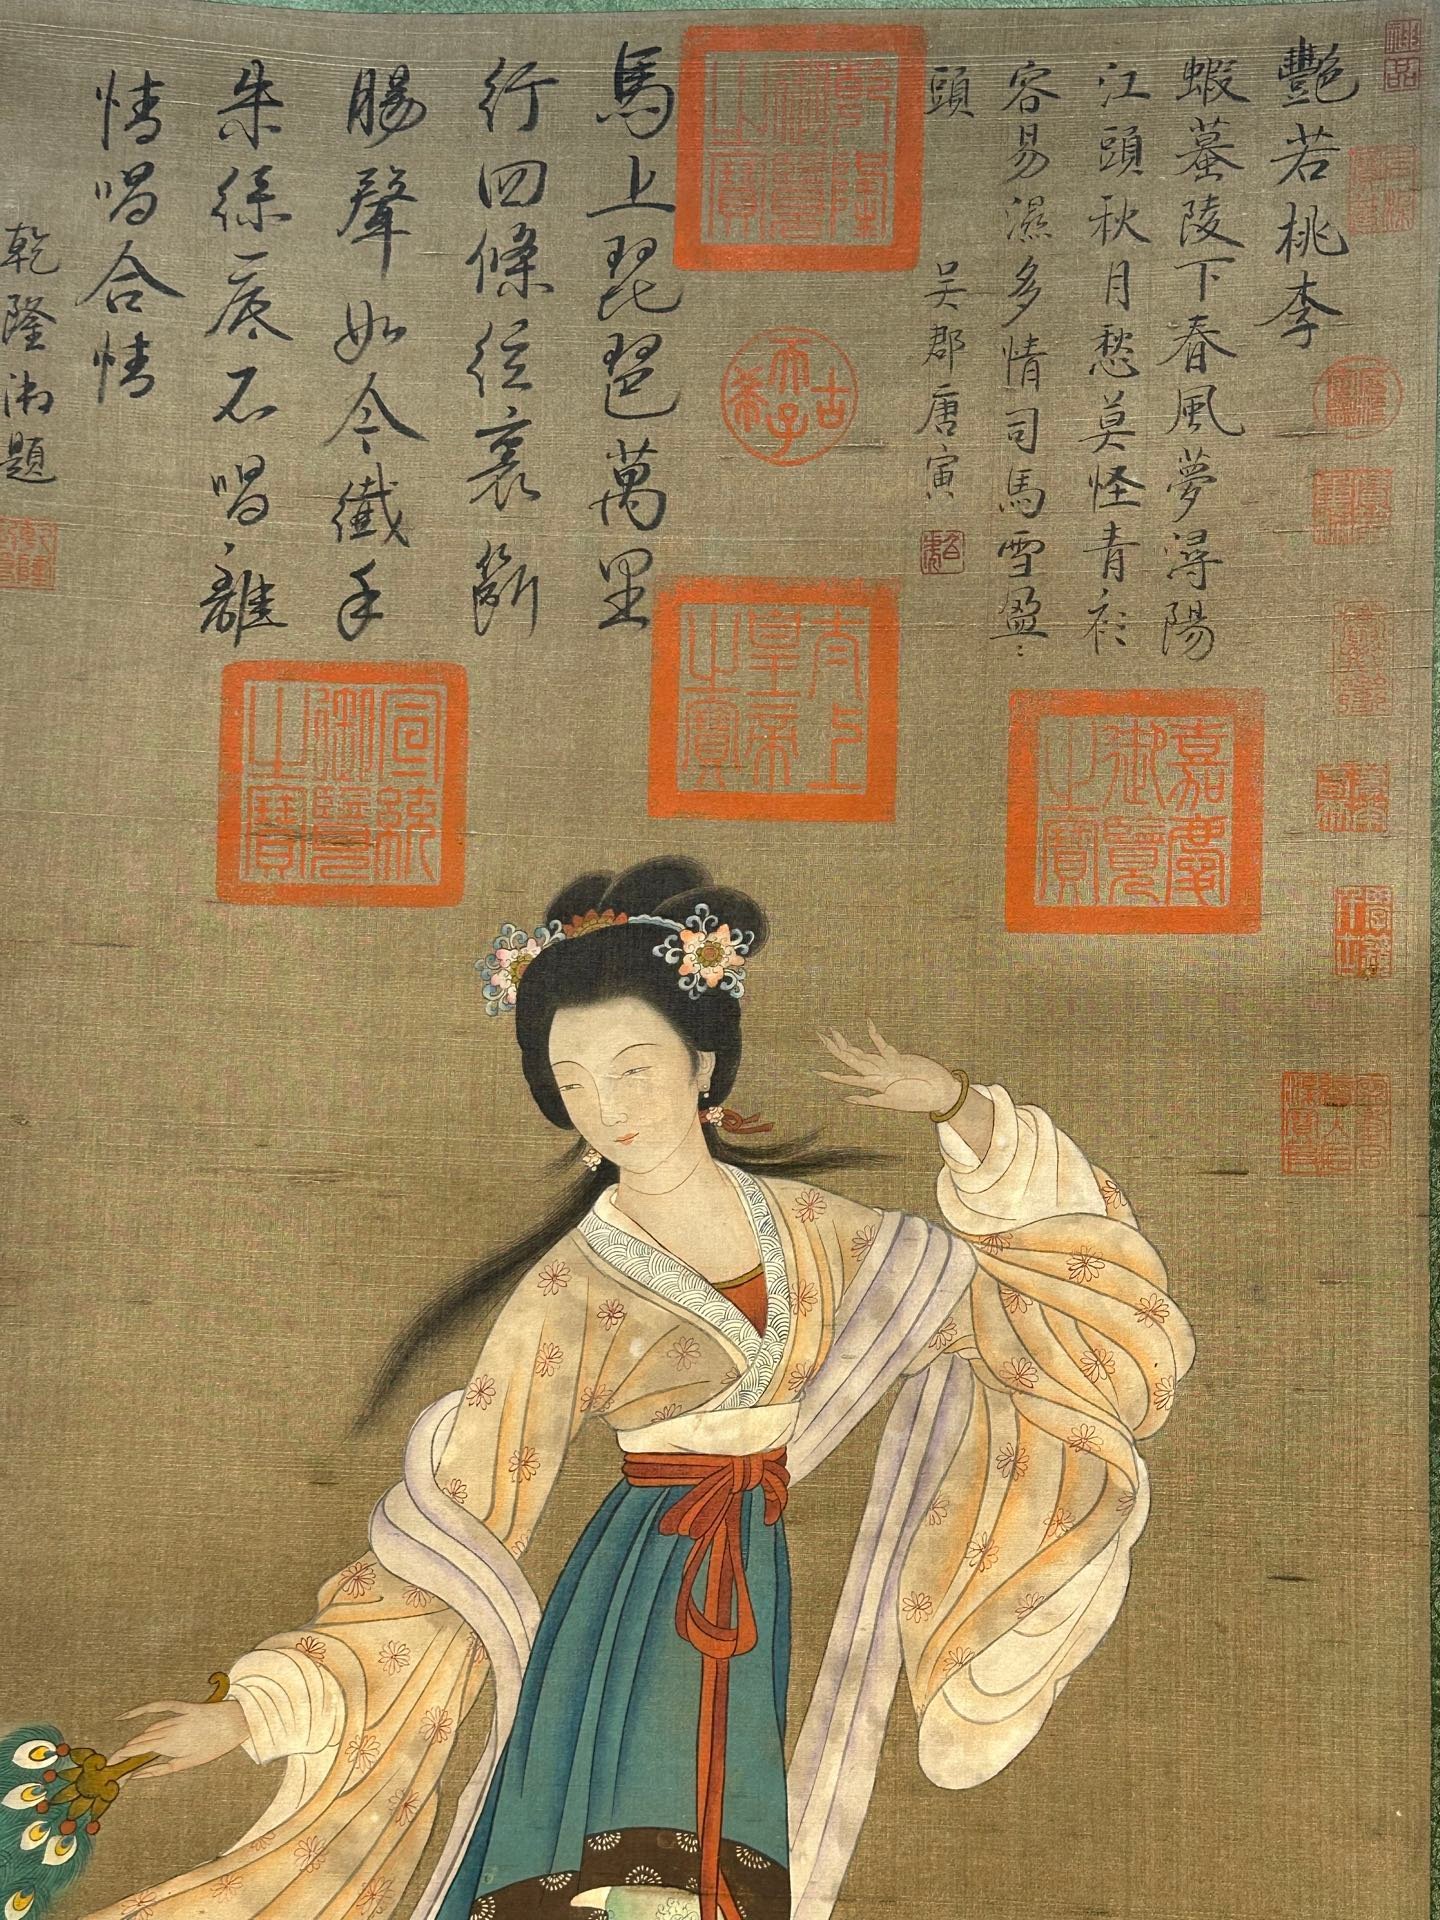 神品
艷若桃李
蝦蟇陵下春風夢潯陽
江頭秋月愁莫怪青衫
容易濕多情司馬雪盈〻
頭
吳郡唐寅
乾隆御覽之寶
古希天子
太上皇帝之寶
嘉慶御覽之寶
馬上琵琶萬里
行四條弦裏斷
腸聲如今纖手
朱絲底不唱離
情唱合情
乾隆御題
宣統御覽之寶